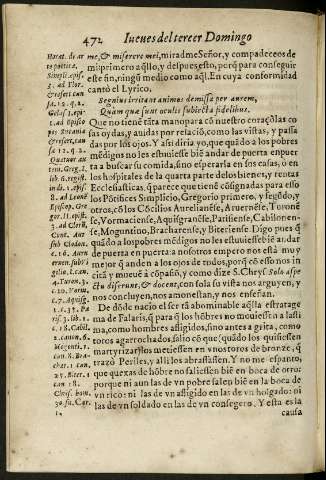 472 Iueues del tercer Domingo
me, & miserere mei, miradme Señor, y compadeceos de
mi: primero aq̃llo, y despues esto, porq̃ para conseguir
este fin, ningũ medio como aq̃l. En cuya conformidad
cantò el Lyrico.
Segnius irritant animos demissa per aurem,
Quàm quæ sunt oculis subiecta fidelibus.
Que no tienẽ tãta mano para cõ nuestro coraçõ las co
sas oydas, y auidas por relaciõ, como las vistas, y passa
das por los ojos. Y assi diria yo, que quãdo a los pobres
mẽdigos no les estuuiesse biẽ andar de puerta en puer
ta a buscar su comida, sino esperarla en sus casas, ò en
los hospitales de la quarta parte de los bienes, y rentas
Ecclesiasticas, q̃ parece que tienẽ cõsignadas para esso
los Põtifices Simplicio, Gregorio primero, y segũdo, y
otros, cõ los Cõcilios Aurelianẽse, Aruernẽse, Toronẽ
se, Vormaciense, Aquisgranẽse, Parisiense, Cabilonen-
se, Moguntino, Bracharense, y Biteriense. Digo pues q̃
quãdo a los pobres mẽdigos no les estuuiesse biẽ andar
de puerta en puerta a nosotros empero nos està muy
mejor q̃ anden a los ojos de todos, porq̃ cõ esso nos in
citã y mueuẽ à cõpasiõ, y como dize S. Chrys. Solo aspe
ctu diserunt, & docent, con sola su vista nos arguyen, y
nos concluyen, nos amonestan, y nos enseñan.
De dõde nacio el ser tã abominable aq̃lla estratage
ma de Falaris, q̃ para q̃ los hõbres no mouiessen a lasti
ma, como hombres afligidos, sino antes a grita, como
toros agarrochados, salio cõ que (quãdo los quisiessen
martyrizar) los metiessen en vnos toros de bronze, q̃
traçò Periles, y alli los abrasassen. Y no me espanto,
que quexas de hõbre no saliessen biẽ en boca de otro:
porque ni aun las de vn pobre salen biẽ en la boca de
vn rico: ni las de vn affligido en las de vn holgado: ni
las de vn soldado en las de vn consegero. Y esta es la
causa
Horat. de ar
te poëtica.
Simpli. epis.
3. ad Flor.
Gelas.
Greg. 2.
lib. 6. regist.
epis.
8. ad Leonẽ
gor. II. epist.
3. ad Cler.
Cont. Aur
sub Clodou.
c. 16. Auer
4. Turon. 3.
c. 10. Vorm.
c. 7. Aquisg.
ris. 3. lib. 1.
c. 18. Cabil.
2. canon. 6.
Mogunti. 1.
can. 8. Bra-
char. 1. can
25. Biter. 1
can 18.
Chrys. hom.